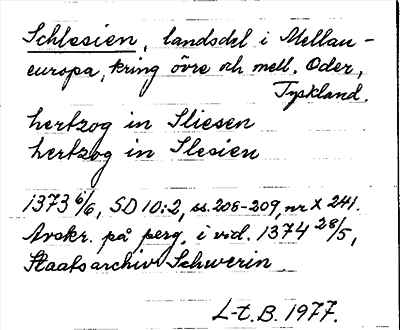 Schlesien, landsdel i Mellan-
europa, kring övre och mell. Oder,
Tyskland.
hertzog in Sliesen
hertzog in Slesien
1373 6/6, SD 10:2, ss. 208-209, nr X 241.
Avskr. på perg. i vid. 1374 28/5,
Staatsarchiv Schwerin.
L-t. B. 1977.